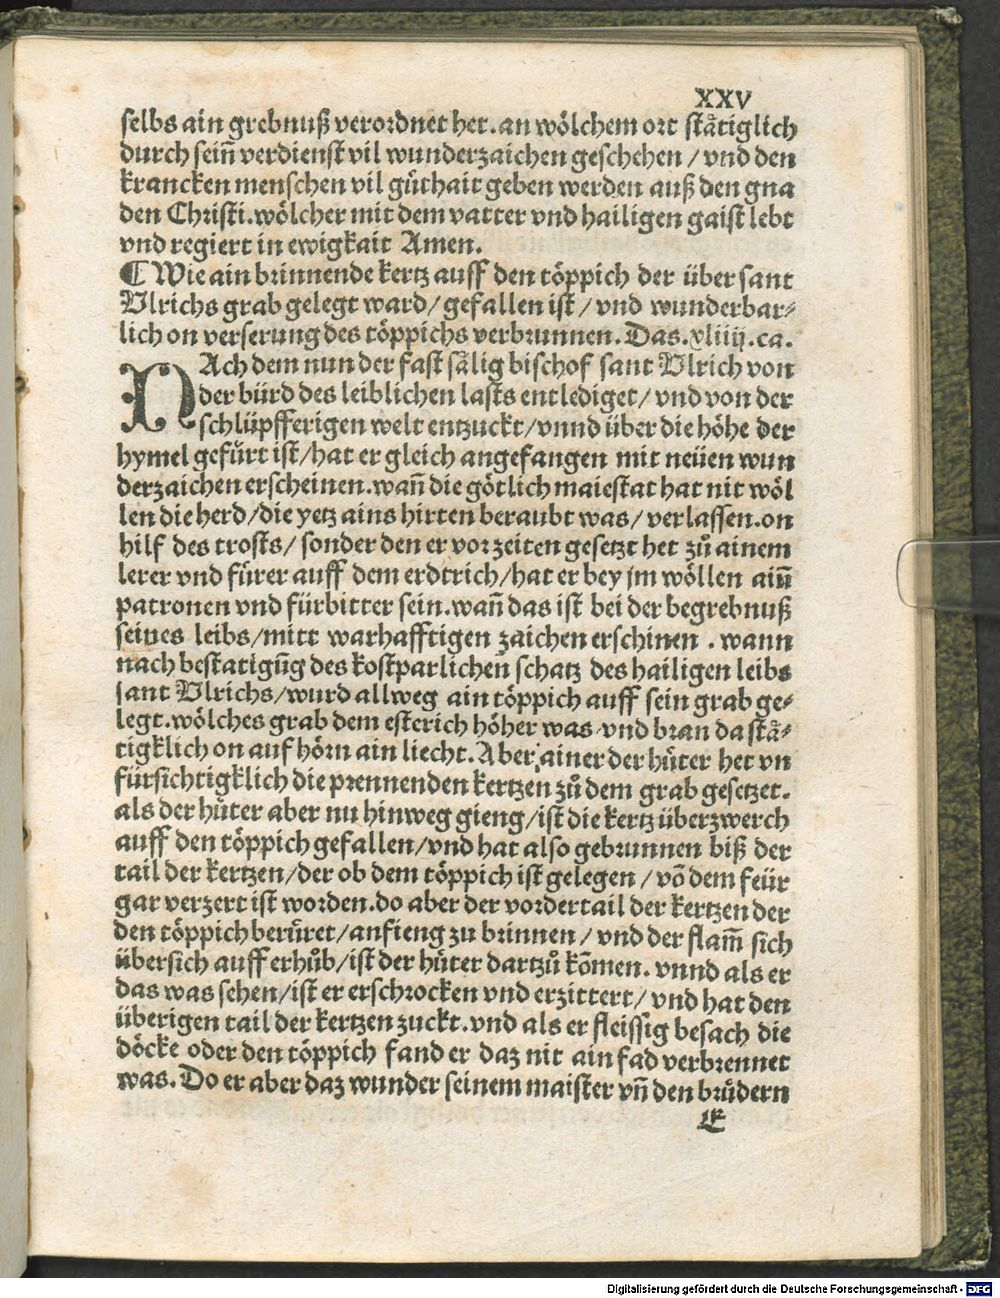 XXV
selbs ain grebnuß verordnet het. an wölchem ort stätiglich
durch sein̄ verdienst vil wunderzaichen geschehen / vnd den
krancken menschen vil gůthait geben werden auß den gna
den Christi. wölcher mit dem vatter vnd hailigen gaist lebt
vnd regiert in ewigkait Amen.
¶ Wie ain brinnende kertz auff den töppich der über sant
Vlrichs grab gelegt ward / gefallen ist / vnd wunderbar⸗
lich on verserung des töppichs verbrunnen. Das. xliiij. ca.
NAch dem nun der fast sälig bischof sant Vlrich von
der bürd des leiblichen lasts entlediget / vnd von der
schlüpfferigen welt entzuckt / vnnd über die höhe der
hymel gefürt ist / hat er gleich angefangen mit neüen wun
derzaichen erscheinen. wañ die götlich maiestat hat nit wöl
len die herd / die yetz ains hirten beraubt was / verlassen. on
hilf des trosts / sonder den er vorzeiten gesetzt het zů ainem
lerer vnd fürer auff dem erdtrich / hat er bey jm wöllen ain̄
patronen vnd fürbitter sein. wañ das ist bei der begrebnuß
seines leibs / mitt warhafftigen zaichen erschinen. wann
nach bestatigūg des kostparlichen schatz des hailigen leibs
sant Vlrichs / wurd allweg ain töppich auff sein grab ge⸗
legt. wölches grab dem esterich höher was / vnd bran da stä⸗
tigklich on auf hörn ain liecht. Aber ainer der hůter het vn
fürsichtigklich die prennenden kertzen zů dem grab gesetzet.
als der hůter aber nu hinweg gieng / ist die kertz überzwerch
auff den töppich gefallen / vnd hat also gebrunnen biß der
tail der kertzen / der ob dem töppich ist gelegen / vō dem feür
gar verzert ist worden. do aber der vordertail der kertzen der
den töppich berůret / anfieng zu brinnen / vnd der flam̄ sich
übersich auff erhůb / ist der hůter dartzů kōmen. vnnd als er
das was sehen / ist er erschrocken vnd erzittert / vnd hat den
überigen tail der kertzen zuckt. vnd als er fleissig besach die
döcke oder den töppich fand er daz nit ain fad verbrennet
was. Do er aber daz wunder seinem maister vn̄ den brůdern